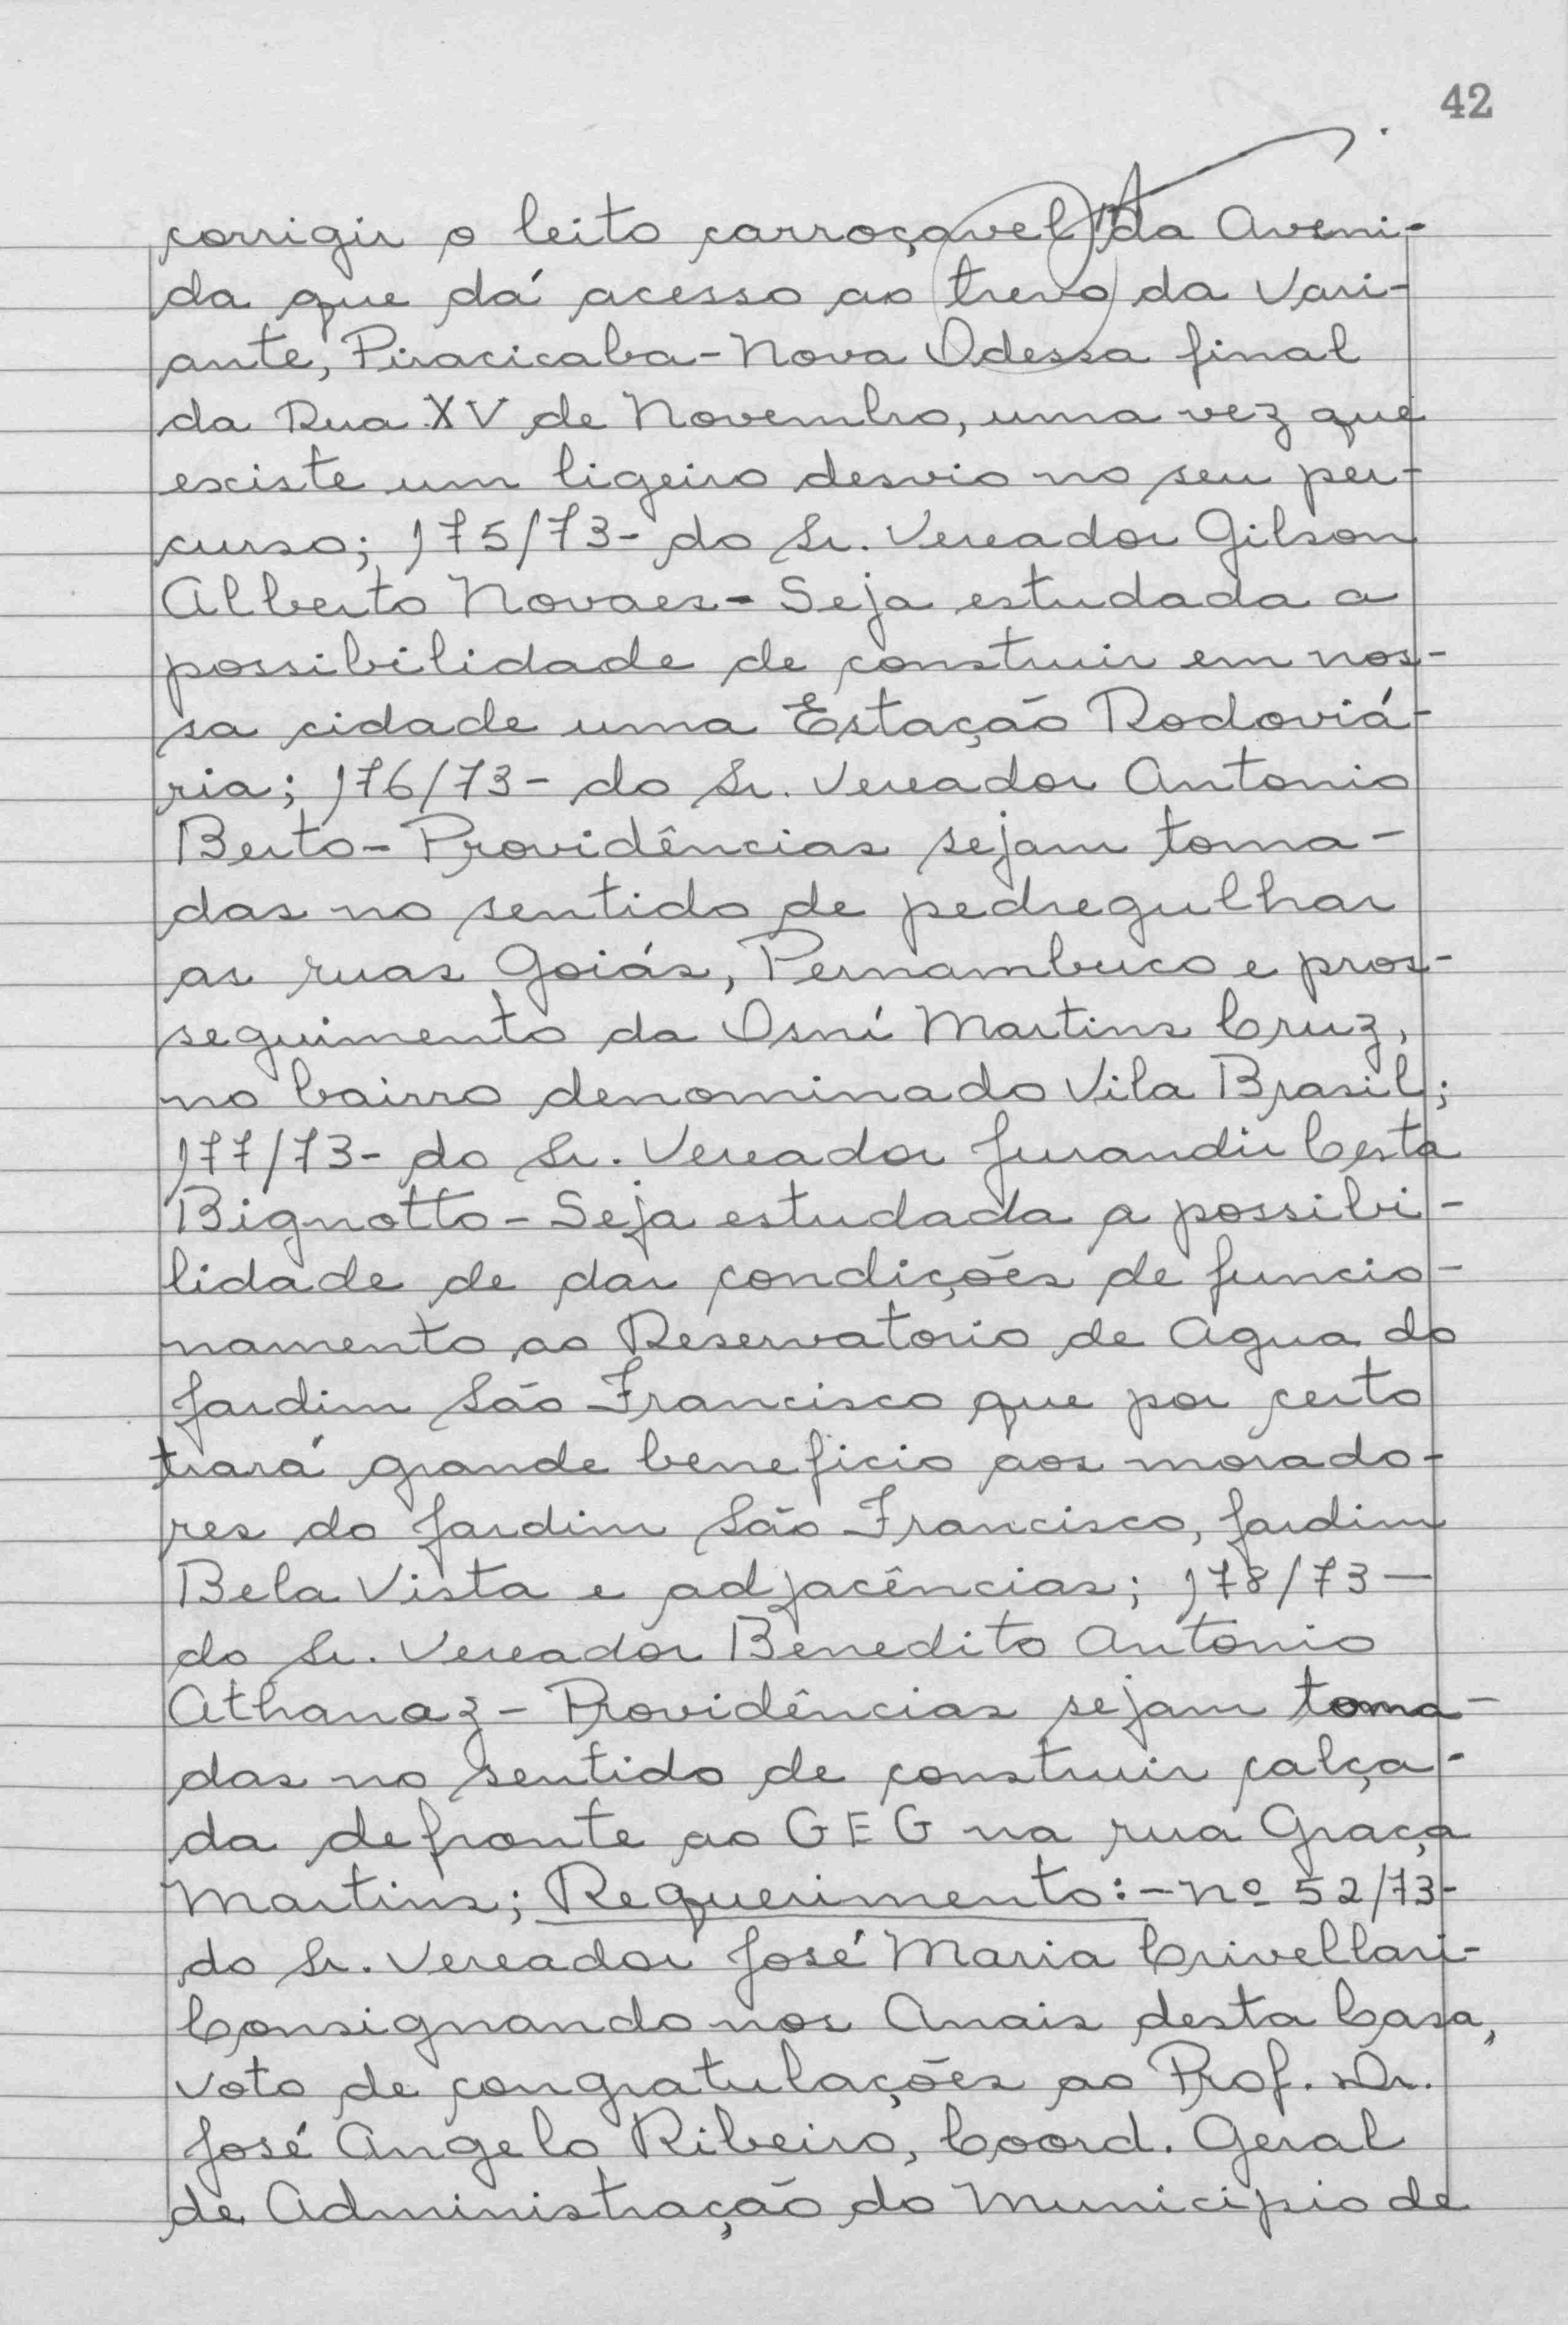 42
corrigir o leito carroçavel da Aveni-
da que dá acesso ao trevo da Vari-
ante, Piracicaba-Nova Odessa final
da Rua XV de Novembro, uma vez que
existe um ligeiro desvio no seu per-
curso; 175/73- do Sr. Vereador Gilson
Alberto Novaes- Seja estudada a
possibilidade de construir em nos-
sa cidade uma Estação Rodoviá-
ria; 176/73- do Sr. Vereador Antonio
Berto- Providências sejam toma-
das no sentido de pedregulhar
as ruas Goiás, Pernambuco e pros-
seguimento da Osní Martins Cruz,
no bairro denominado Vila Brasil;
177/73- do Sr. Vereador Jurandir Certa
Bignotto- Seja estudada a possibi-
lidade de dar condições de funcio-
namento ao Reservatorio de Agua do
Jardim São Francisco que por certo
trará grande beneficio aos morado-
res do Jardim São Francisco, Jardim
Bela Vista e adjacências; 178/73-
do Sr. Vereador Benedito Antonio
Athanaz- Providências sejam toma-
das no sentido de construir calça-
da defronte ao GEG na rua Graça
Martins; Requerimento:- nº 52/73-
do Sr. Vereador José Maria Crivellari-
Consignando nos Anais desta Casa,
voto de congratulações ao Prof. Dr.
José Angelo Ribeiro, Coord. Geral
de Administração do Municipio de